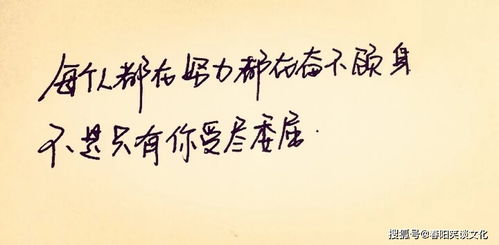 每个人都在努力都在奋不顾身
不是只有你受尽委屈.
搜狐号@春阳笑谈文化